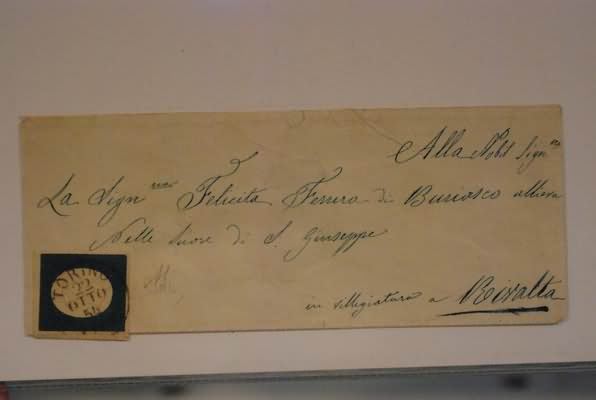 Alla Nobil Sign.ra
La Sign.ra Felicita Ferrero di Buriasco allieva
Nelle Suore di S. Giuseppe
in villegiatura a Rivalta
TORINO
22
OTTO
54